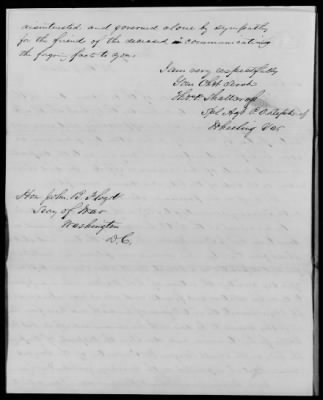 disinterested, and governed alone by sympathy
for the friends of the deceased in communicating
the foregoing facts to you.
I am very respectfully
Your Obt Servt
Thos Shallcross
Spl Agt P. O. Dept
Wheeling Va
Hon John B. Floyd
Secy of War
Washington
D. C.